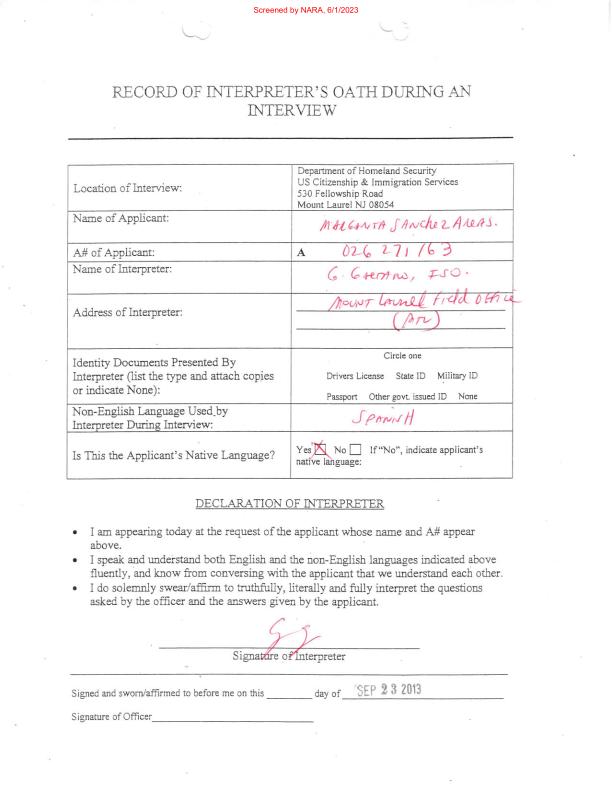 Screened by NARA, 6/1/2023
RECORD OF INTERPRETER'S OATH DURING AN
INTERVIEW
Location of Interview:
Department of Homeland Security
US Citizenship & Immigration Services
530 Fellowship Road
Mount Laurel NJ 08054
Name of Applicant:
SANCHEZ
A# of Applicant:
A 026 271 163
Name of Interpreter:
G. ISO.
Address of Interpreter:
MOUNT Laurel Field Office
Identity Documents Presented By
Interpreter (list the type and attach copies
or indicate None):
Circle one
Drivers License State ID Military ID
Passport Other govt. issued ID None
Non-English Language Used by
Interpreter During Interview:
SPANISH
Is This the Applicant's Native Language?
Yes No If "No", indicate applicant's
native language:
DECLARATION OF INTERPRETER
• I am appearing today at the request of the applicant whose name and A# appear
above.
• I speak and understand both English and the non-English languages indicated above
fluently, and know from conversing with the applicant that we understand each other.
• I do solemnly swear/affirm to truthfully, literally and fully interpret the questions
asked by the officer and the answers given by the applicant.
Signature of Interpreter
Signed and sworn/affirmed to before me on this day of SEP 23 2013
Signature of Officer